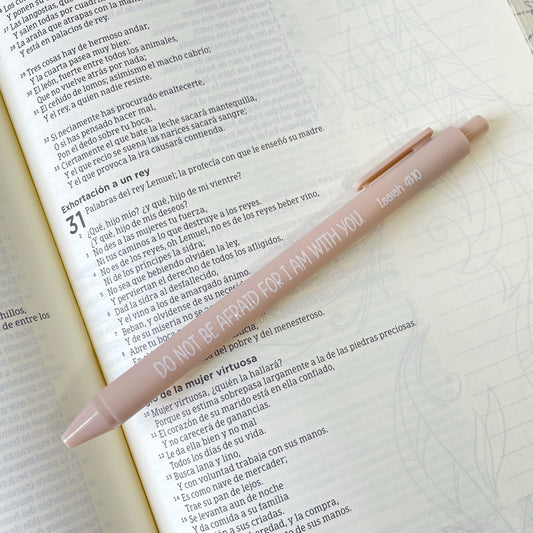 Y ponen su
27 Las langostas, que
Y salen todas por cuadri
28 La araña que atrapas con la man
Y está en palacios de rey.
29 Tres cosas hay de hermoso andar,
Y la cuarta pasea muy bien:
30 El león, fuerte entre todos los animales,
Que no vuelve atrás por nada;
31 El ceñido de lomos; asimismo el macho cabrío;
Y el rey, a quien nadie resiste.
32 Si neciamente has procurado enaltecerte,
O si has pensado hacer mal,
Pon el dedo sobre tu boca.
33 Ciertamente el que bate la leche sacará mantequilla,
Y el que recio se suena las narices sacará sangre;
Y el que provoca la ira causará contienda.
Exhortación a un rey
31 Palabras del rey Lemuel; la profecía con que le enseñó su madre.
2 ¿Qué, hijo mío? ¿y qué, hijo de mi vientre?
¿Y qué, hijo de mis deseos?
3 No des a las mujeres tu fuerza,
Ni tus caminos a lo que destruye a los reyes.
4 No es de los reyes, oh Lemuel, no es de los reyes beber vino,
Ni de los príncipes la sidra;
5 No sea que bebiendo olviden la ley,
Y perviertan el derecho de todos los afligidos.
6 Dad la sidra al desfallecido,
Y el vino a los de amargado ánimo.
7 Beban, y olvídense de su necesi
Y de su miseria no se
8 Abre tu boca
del pobre y del menesteroso.
o de la mujer virtuosa
10 Mujer virtuosa, ¿quién la hallará?
Porque su estima sobrepasa largamente a la de las piedras preciosas.
11 El corazón de su marido está en ella confiado,
Y no carecerá de ganancias.
12 Le da ella bien y no mal
Todos los días de su vida.
13 Busca lana y lino,
Y con voluntad trabaja con sus manos.
14 Es como nave de mercader;
Trae su pan de lejos.
15 Se levanta aun de noche
Y da comida a su familia
ción a sus criadas.
heredad, y la compra,
to de sus manos.
de entre los
DO NOT BE AFRAID FOR I AM WITH YOU.
Isaiah 41:10